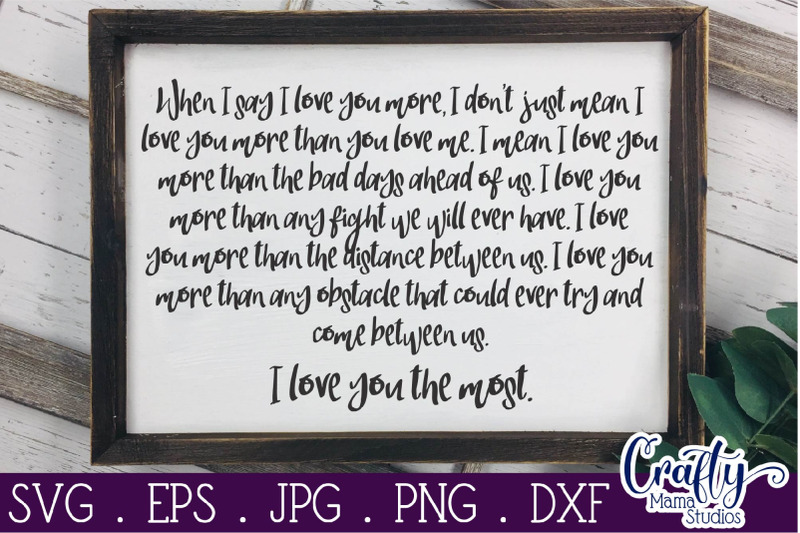 When I say I love you more, I don't just mean I
love you more than you love me. I mean I love you
more than the bad days ahead of us. I love you
more than any fight we will ever have. I love
you more than the distance between us. I love you
more than any obstacle that could ever try and
come between us.
I love you the most.
SVG . EPS . JPG . PNG . DXF
Crafty
Mama
Studios